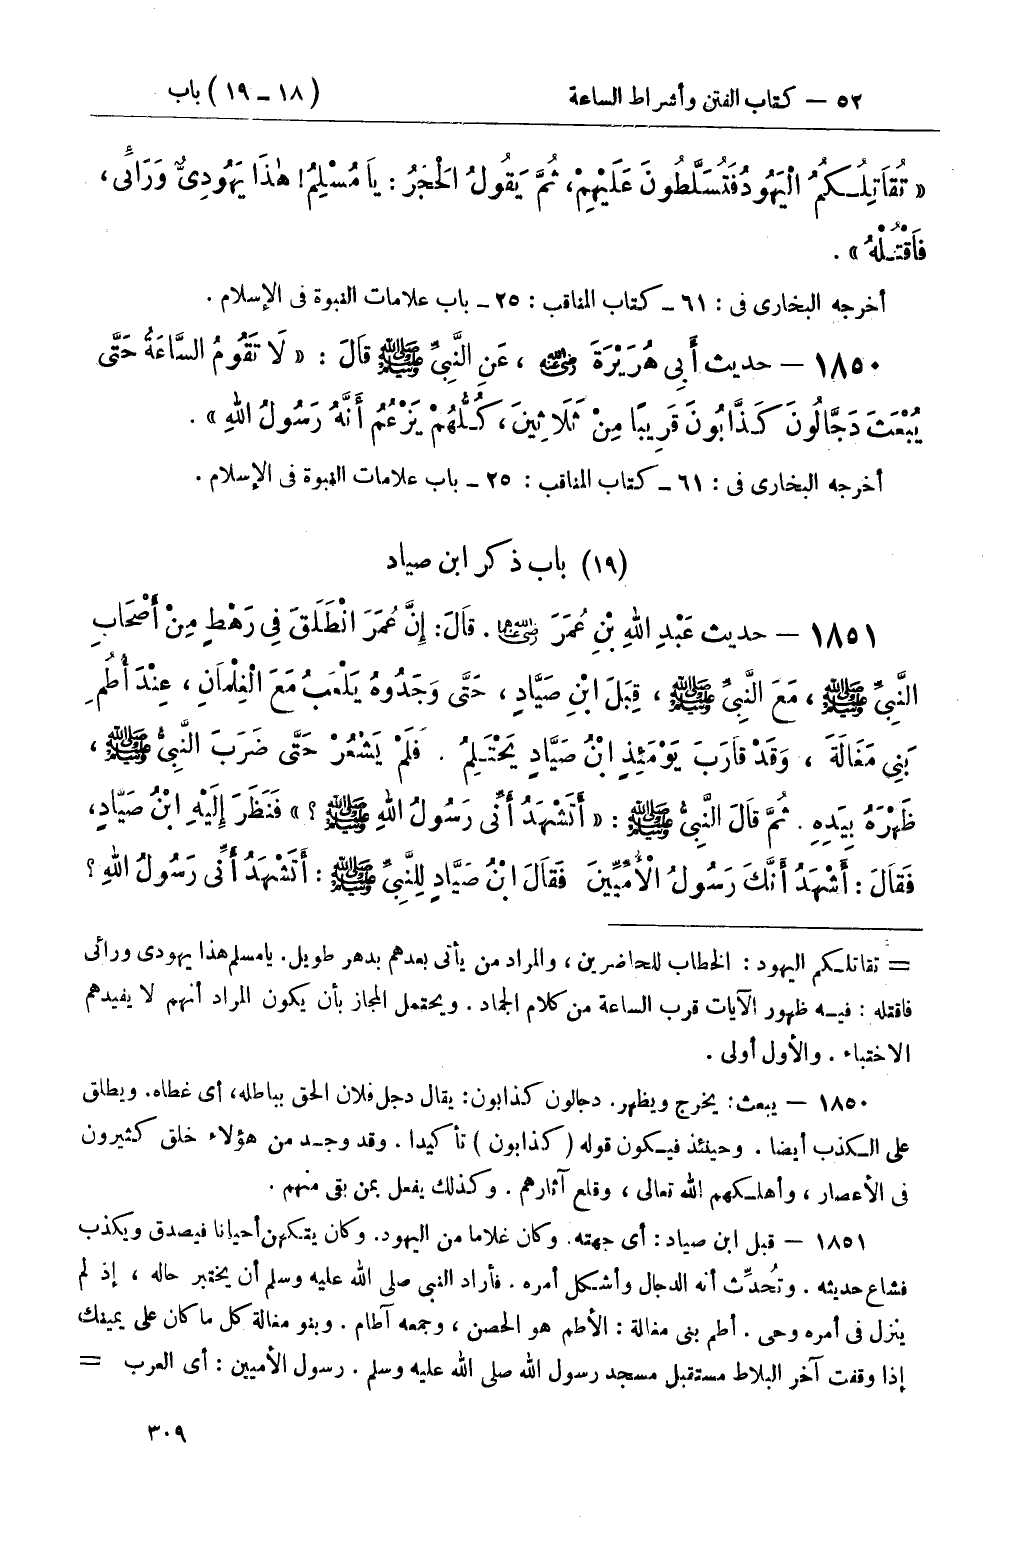 ٥٢ – كتاب الفتن وأشراط الساعة (١٨ – ١٩) باب
« تُقَاتِلُكُمُ الْيَهُودُ فَتُسَلَّطُونَ عَلَيْهِمْ، ثُمَّ يَقُولُ الْحَجَرُ : يَا مُسْلِمُ! هٰذَا يَهُودِىٌّ وَرَائِى،
فَاقْتُلْهُ » .
أخرجه البخارى فى : ٦١ – كتاب المناقب : ٢٥ – باب علامات النبوة فى الإسلام .
١٨٥٠ – حديث أَبِى هُرَيْرَةَ رضي الله عنه ، عَنِ النَّبِىِّ ﷺ قَالَ : « لَا تَقُومُ السَّاعَةُ حَتَّى
يُبْعَثَ دَجَّالُونَ كَذَّابُونَ قَرِيبًا مِنْ ثَلَاثِينَ، كُلُّهُمْ يَزْعُمُ أَنَّهُ رَسُولُ اللهِ » .
أخرجه البخارى فى : ٦١ – كتاب المناقب : ٢٥ – باب علامات النبوة فى الإسلام .
(١٩) باب ذكر ابن صياد
١٨٥١ – حديث عَبْدِ اللهِ بْنِ عُمَرَ رضي الله عنهما . قَالَ: إِنَّ عُمَرَ انْطَلَقَ فِى رَهْطٍ مِنْ أَصْحَابِ
النَّبِىِّ ﷺ ، مَعَ النَّبِىِّ ﷺ ، قِبَلَ ابْنِ صَيَّادٍ ، حَتَّى وَجَدُوهُ يَلْعَبُ مَعَ الْغِلْمَانِ ، عِنْدَ أُطُمِ
بَنِى مَغَالَةَ ، وَقَدْ قَارَبَ يَوْمَئِذٍ ابْنُ صَيَّادٍ يَحْتَلِمُ . فَلَمْ يَشْعُرْ حَتَّى ضَرَبَ النَّبِىُّ ﷺ ،
ظَهْرَهُ بِيَدِهِ . ثُمَّ قَالَ النَّبِىُّ ﷺ : « أَتَشْهَدُ أَنِّى رَسُولُ اللهِ ﷺ ؟ » فَنَظَرَ إِلَيْهِ ابْنُ صَيَّادٍ،
فَقَالَ : أَشْهَدُ أَنَّكَ رَسُولُ الْأُمِّيِّينَ فَقَالَ ابْنُ صَيَّادٍ لِلنَّبِىِّ ﷺ : أَتَشْهَدُ أَنِّى رَسُولُ اللهِ ؟
= تقاتلكم اليهود : الخطاب للحاضرين ، والمراد من يأتى بعدهم بدهر طويل. يا مسلم هذا يهودى ورائى
فاقتله : فيه ظهور الآيات قرب الساعة من كلام الجماد . ويحتمل المجاز بأن يكون المراد أنهم لا يفيدهم
الاختباء . والأول أولى .
١٨٥٠ – يبعث: يخرج ويظهر. دجالون كذابون: يقال دجل فلان الحق بباطله، أى غطاه. ويطلق
على الكذب أيضا . وحينئذ فيكون قوله ( كذابون ) تأكيدا . وقد وجد من هؤلاء خلق كثيرون
فى الأعصار ، وأهلكهم الله تعالى ، وقلع آثارهم . وكذلك يفعل بمن بقى منهم .
١٨٥١ – قبل ابن صياد : أى جهته. وكان غلاما من اليهود. وكان يتكهن أحيانا فيصدق ويكذب
فشاع حديثه . وتُحدِّث أنه الدجال وأشكل أمره . فأراد النبى صلى الله عليه وسلم أن يختبر حاله ، إذ لم
ينزل فى أمره وحى . أطم بنى مغالة : الأطم هو الحصن ، وجمعه آطام . وبنو مغالة كل ما كان على يمينك
إذا وقفت آخر البلاط مستقبل مسجد رسول الله صلى الله عليه وسلم . رسول الأميين : أى العرب =
٣٠٩